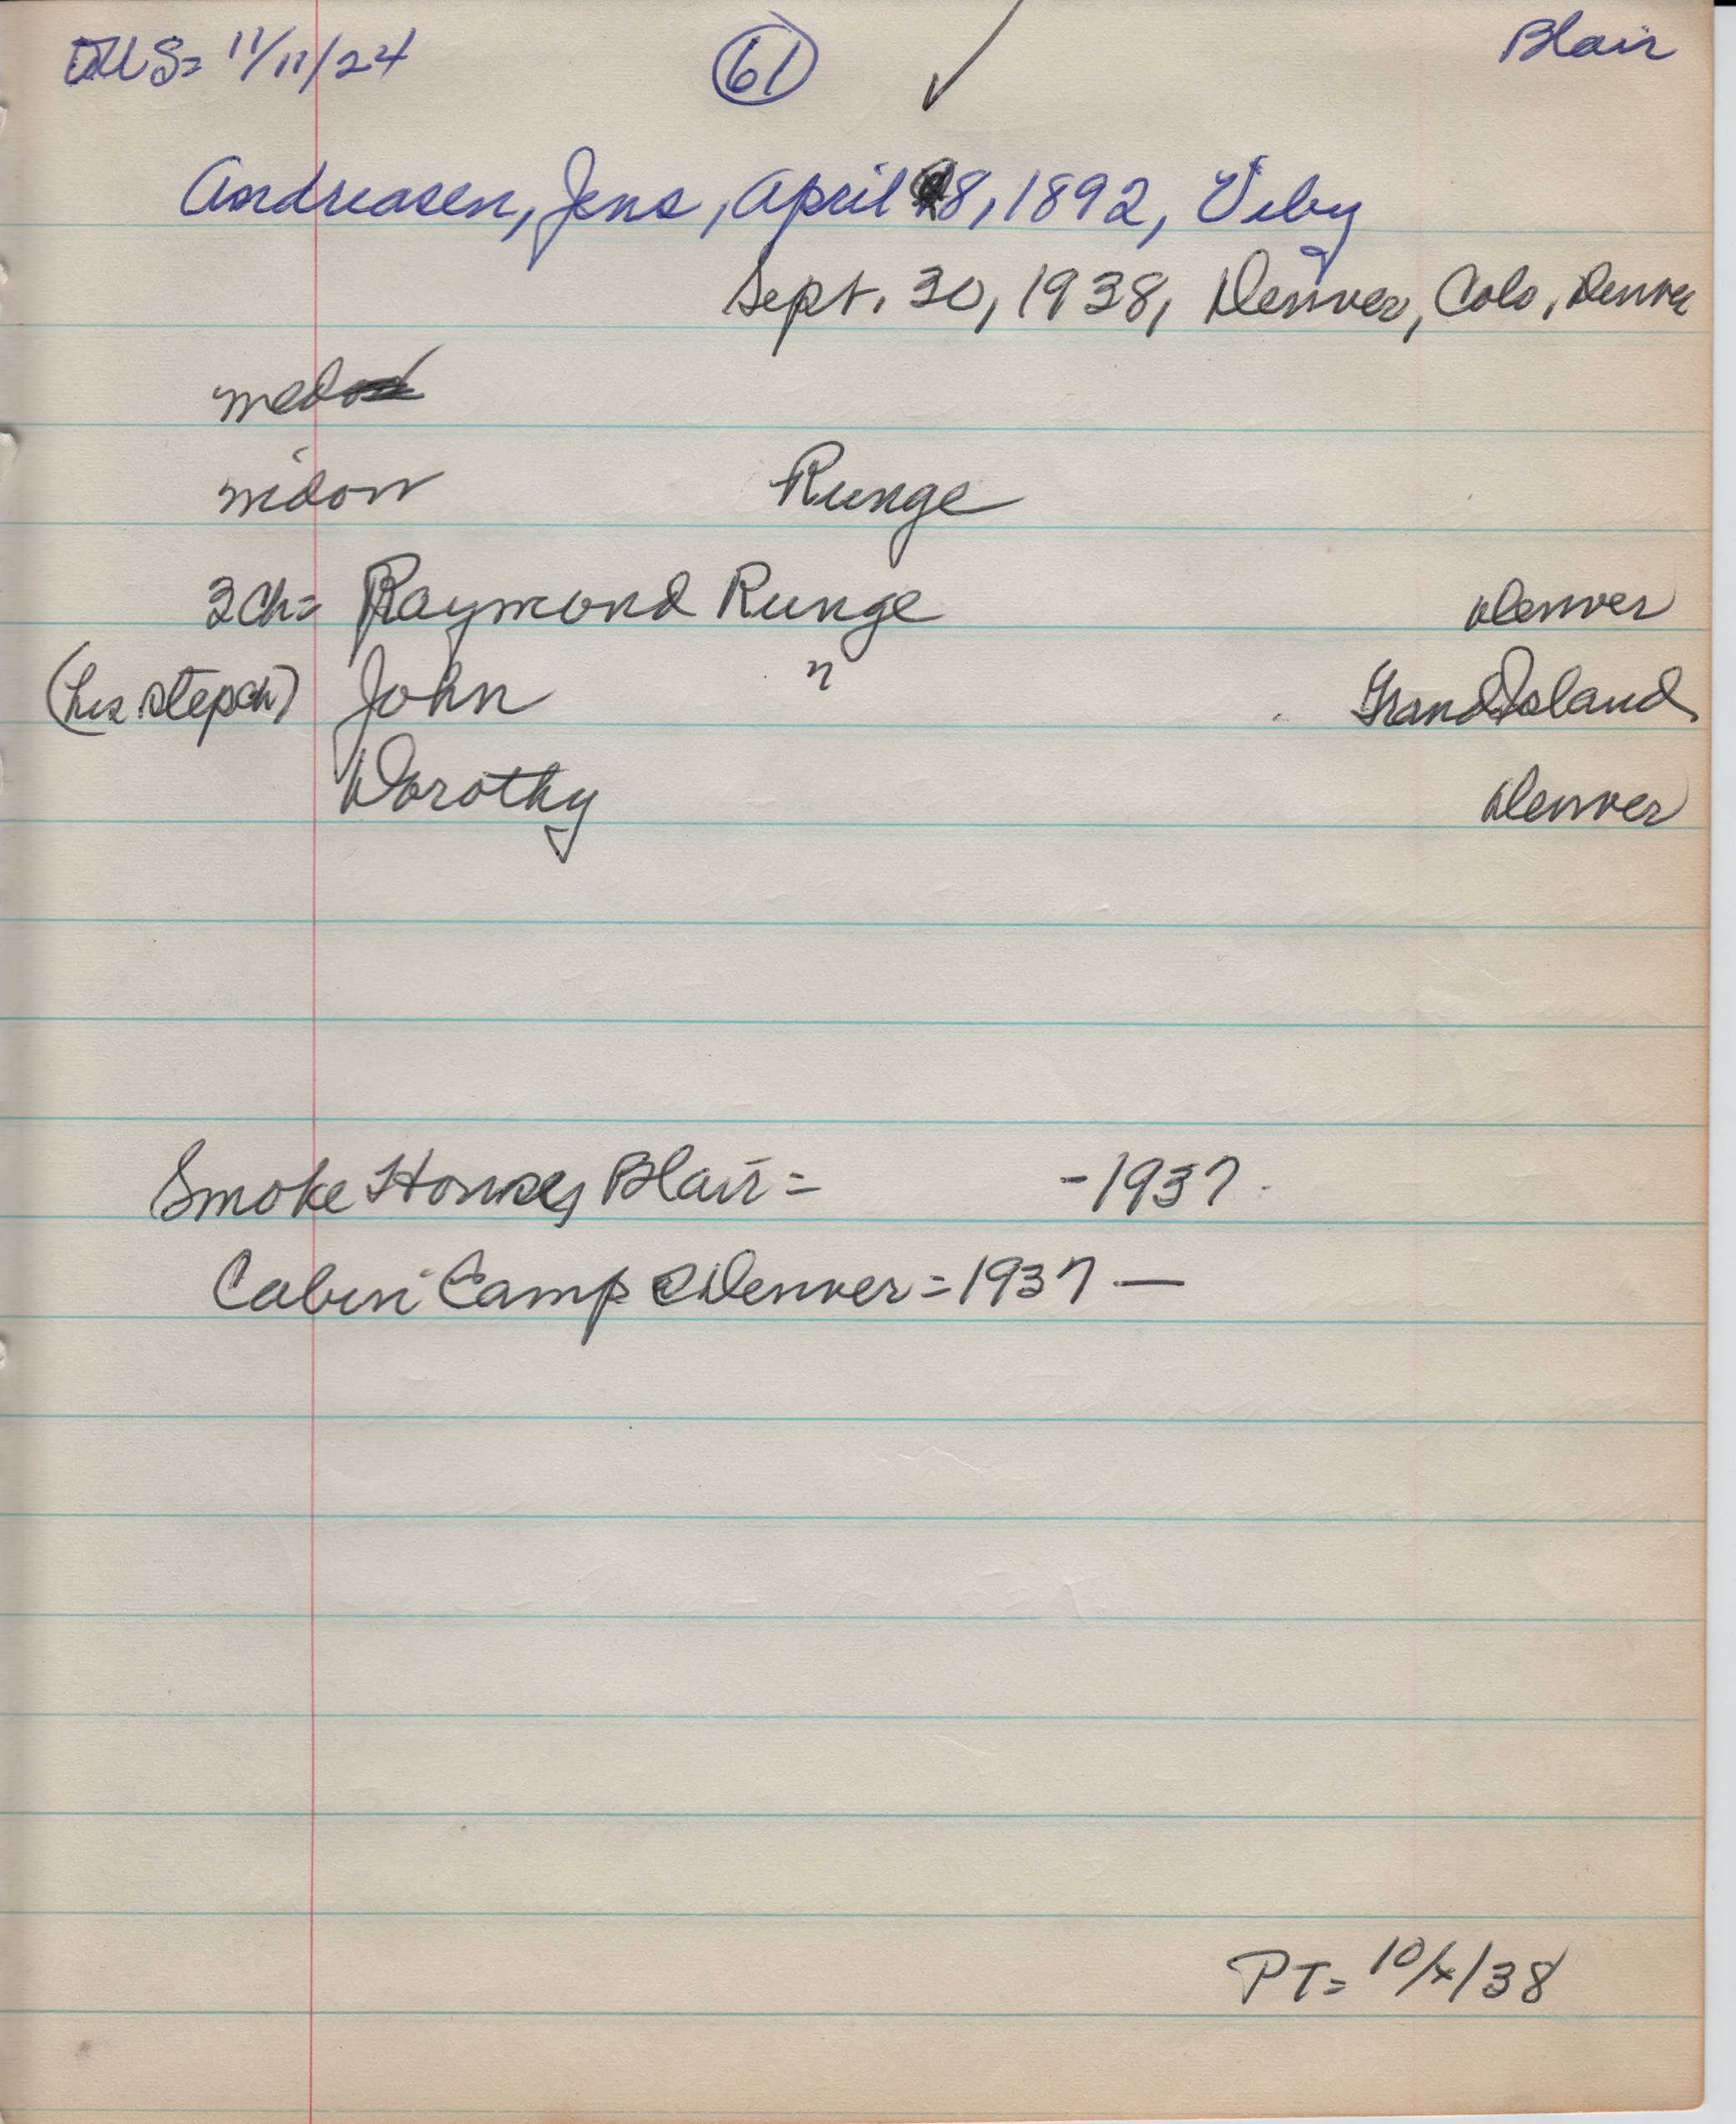 DUS= 11/11/24 61 Blair
Andreasen, Jens, April 8, 1892, Viby
Sept. 30, 1938, Denver, Colo, Denver
widow Runge
3 ch= Raymond Runge Denver
(his stepch) John " Grand Island
Dorothy Denver
Smoke House, Blair = -1937.
Cabin Camp Denver = 1937 —
PT= 10/4/38